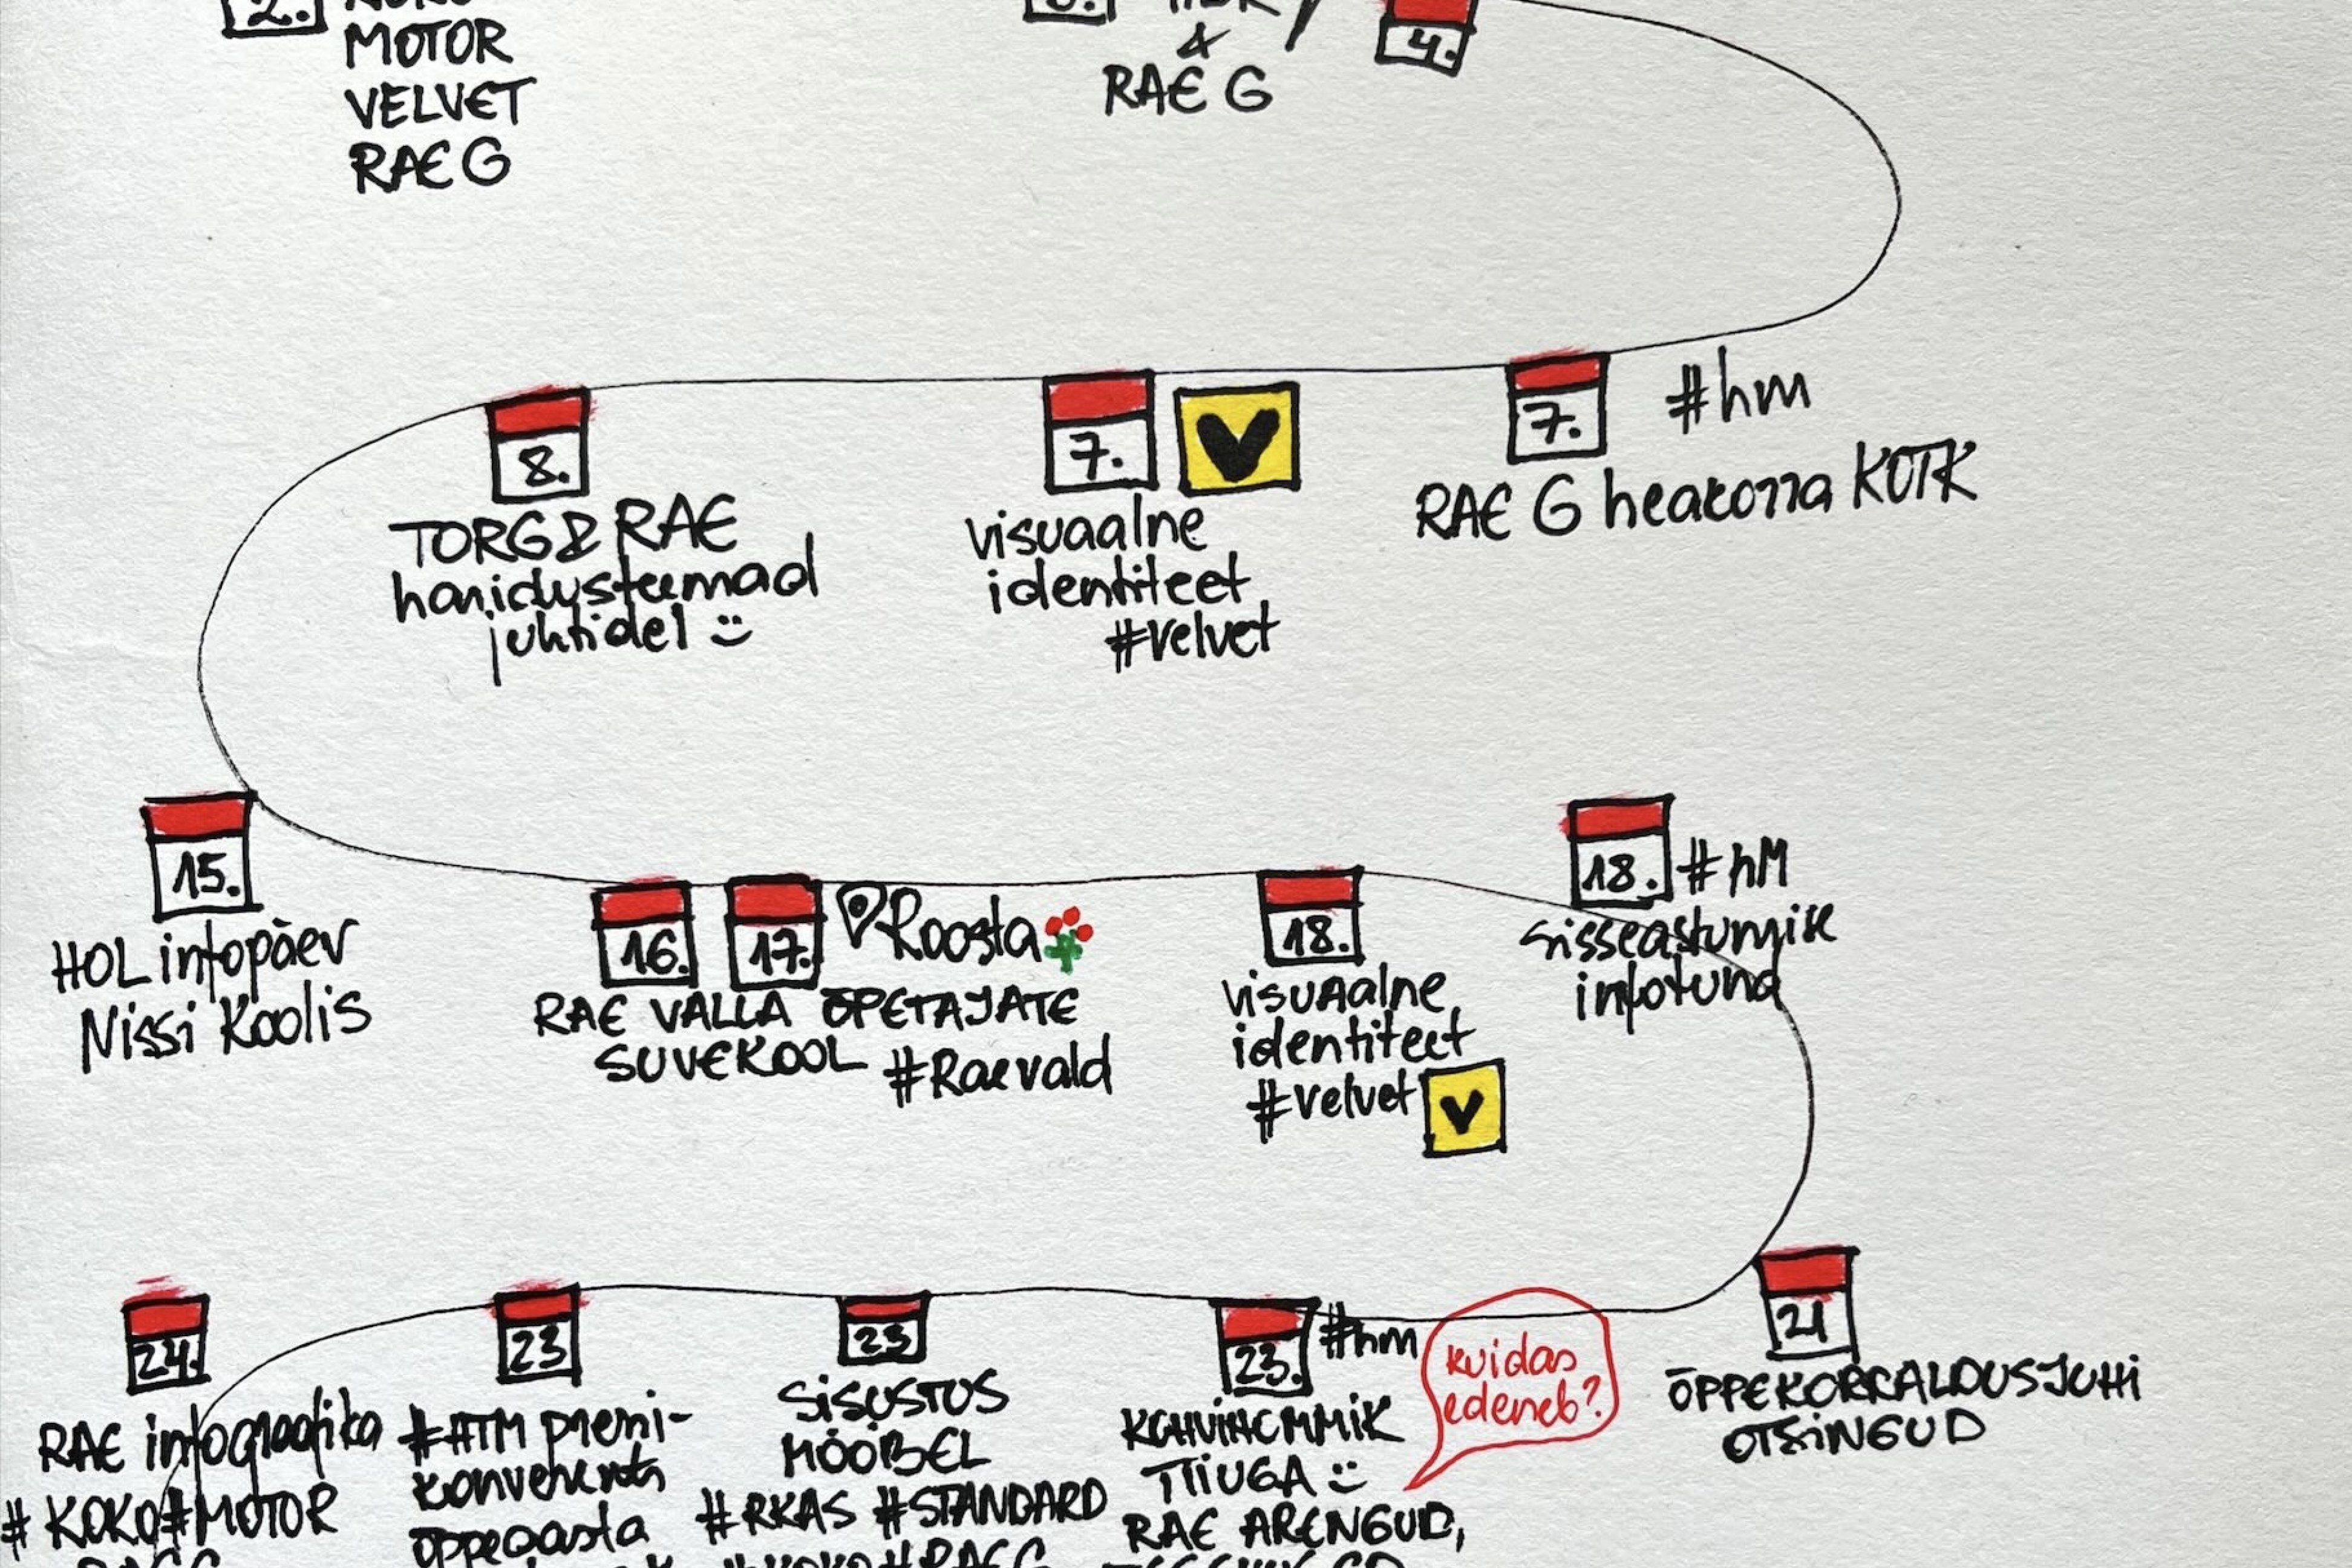 2.
MOTOR
VELVET
RAE G
&
RAE G
4.
8.
TORG & RAE
haridusteemad
juhtidel
7.
V
visuaalne
identiteet
#velvet
7.
#hm
RAE G heakorra KOTK
15.
HOL infopäev
Nissi Koolis
16.
17.
Roosta
RAE VALLA ÕPETAJATE
SUVEKOOL #Raevald
18.
visuaalne
identiteet
#velvet
V
18.
#hM
sisseastumise
infotund
24.
RAE infograafika
# KOKO #MOTOR
23
#HTM
konverents
õppeaasta
23
SISUSTUS
MÖÖBEL
#RKAS #STANDARD
#KOKO #RAEG
23.
#hm
KOHVIHOMMIK
TIIUGA
RAE ARENGUD,
kuidas
edeneb?
21
ÕPPEKORRALDUSJUHI
OTSINGUD